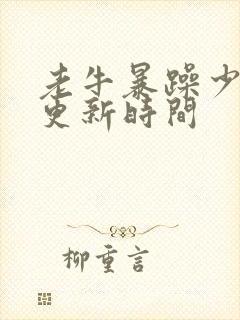 老牛暴躁少
更新時間
柳重言